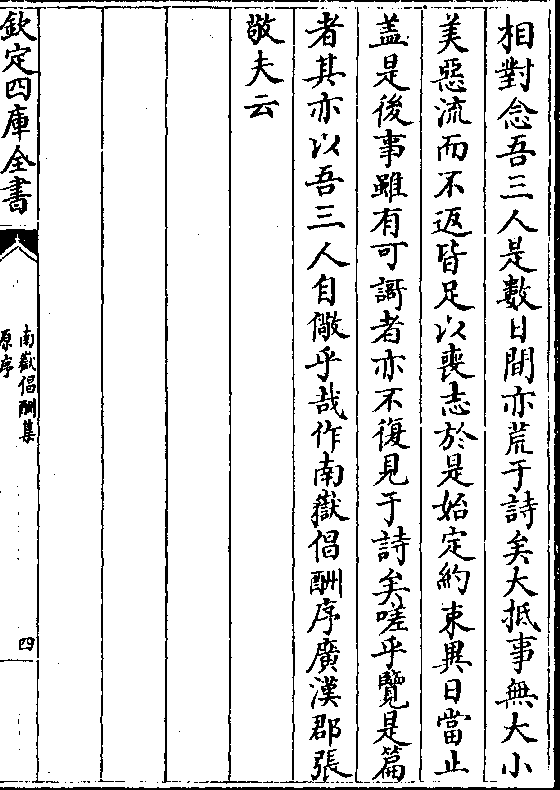 相對念吾三人是數日間亦荒于詩矣大抵事無大小
美惡流而不返皆足以喪志於是始定約束異日當止
盖是後事雖有可謌者亦不復見于詩矣嗟乎覽是篇
者其亦以吾三人自儆乎哉作南嶽倡酬序廣漢郡張
敬夫云
欽定四庫全書
南嶽倡酬集
原序
四